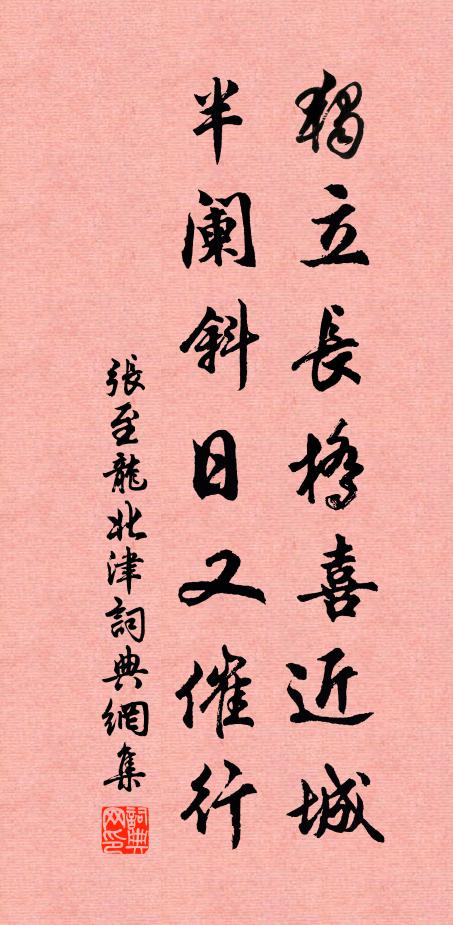 獨立長橋喜近城
半闌斜日又催行
張至龍北津詞典網集
詞典网印